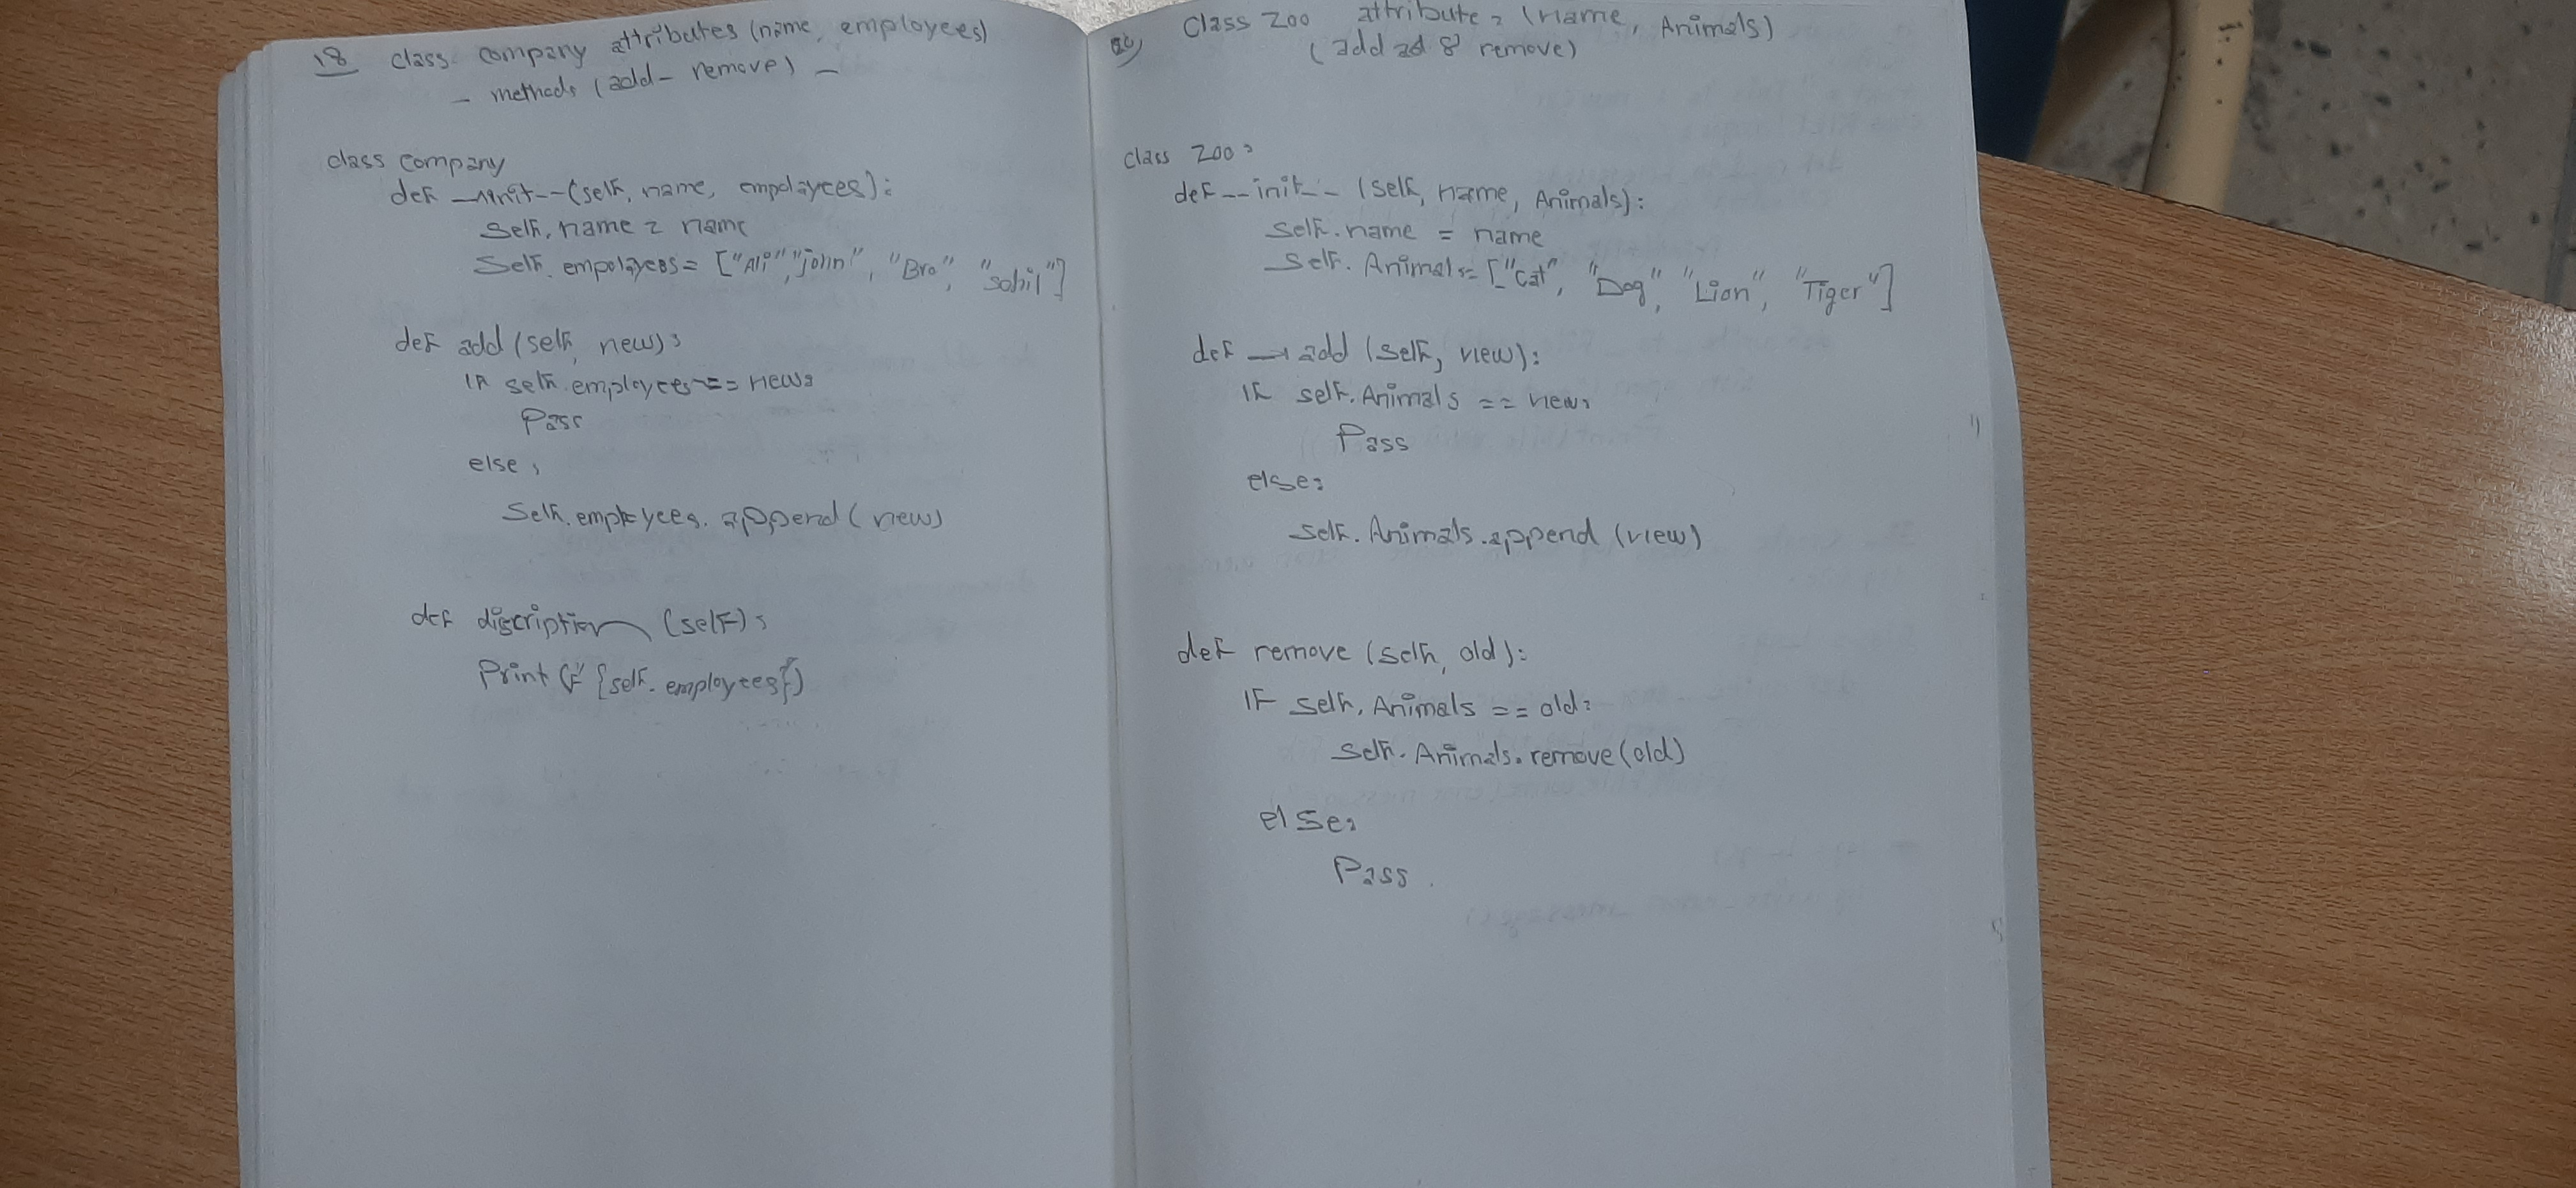 18 class company attributes (name, employees)
- methods (add - remove) -
class company
def __init__(self, name, empolayees):
self.name = name
self.empolayees = ["Ali", "john", "Bro", "Sohil"]
def add(self, new):
if self.employees == new:
Pass
else:
self.employees.append(new)
def discription(self):
Print(f"{self.employees}")
Class Zoo attribute = (name, Animals)
(add ad & remove)
class Zoo:
def __init__(self, name, Animals):
Self.name = name
Self.Animals = ["Cat", "Dog", "Lion", "Tiger"]
def add(self, view):
if self.Animals == new:
Pass
else:
self.Animals.append(view)
def remove(self, old):
IF self.Animals == old:
self.Animals.remove(old)
else:
Pass